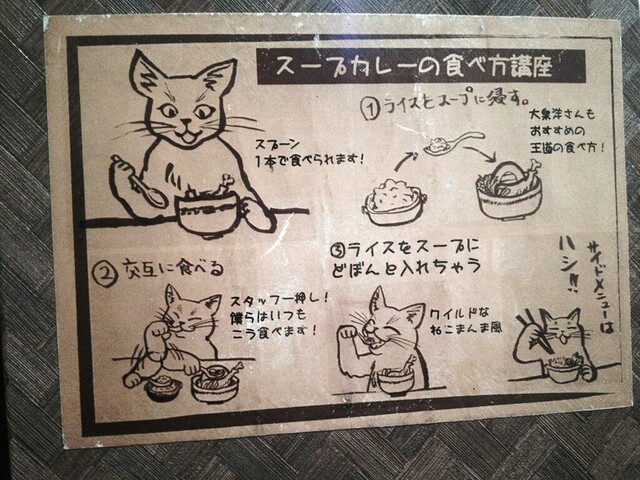 スープカレーの食べ方講座
スプーン
1本で食べられます!
①ライスをスープに浸す。
大泉洋さんも
おすすめの
王道の食べ方!
②交互に食べる
スタッフ一押し!
僕らはいつも
こう食べます!
③ライスをスープに
どぼんと入れちゃう
ワイルドな
ねこまんま風
サイドメニューは
ハシ!!